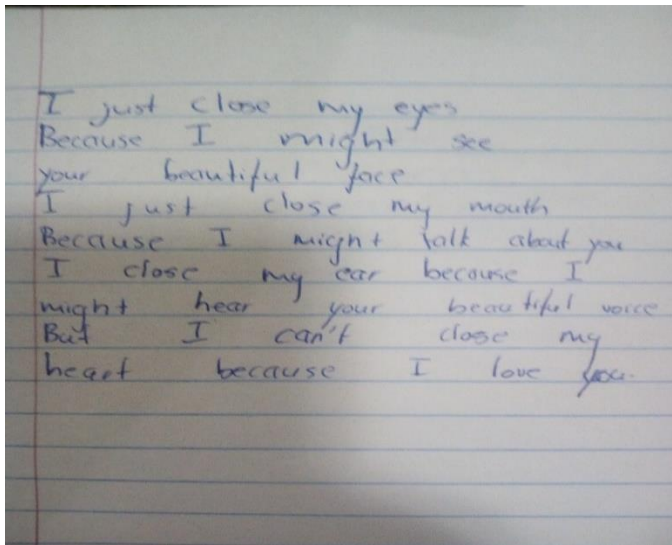 I just close my eyes
Because I might see
your beautiful face
I just close my mouth
Because I might talk about you
I close my ear because I
might hear your beautiful voice
But I can't close my
heart because I love you.